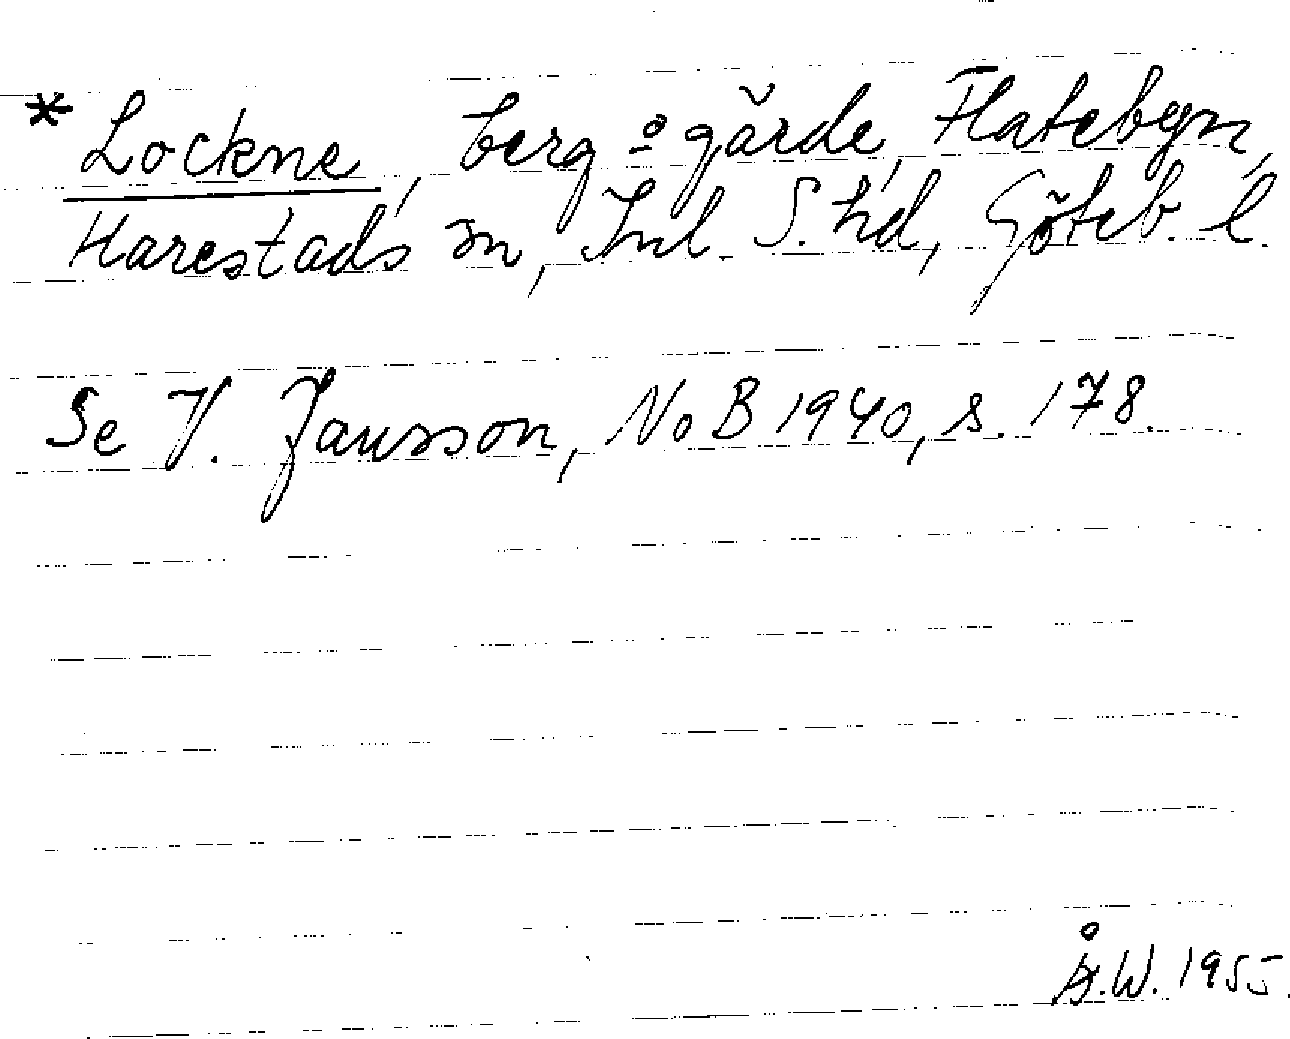 * Lockne, berg o gärde, Flatebyn,
Harestads sn, Inl. S. hd, Göteb. l.
Se V. Jansson, NoB 1940, s. 178.
Å.W. 1955.